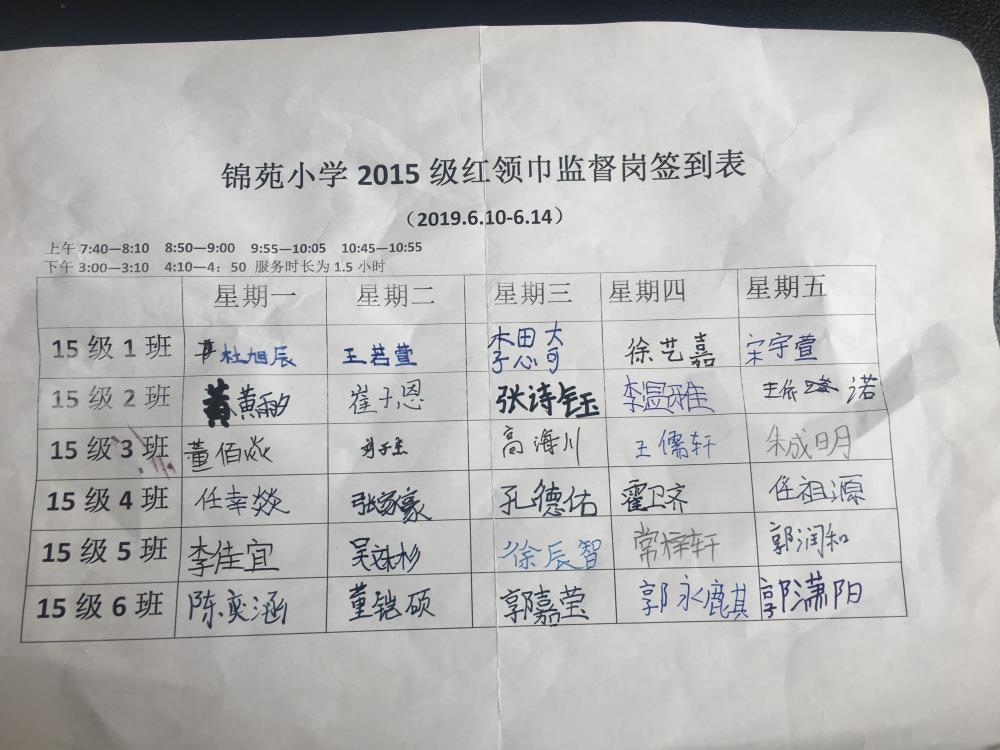 锦苑小学 2015 级红领巾监督岗签到表
（2019.6.10-6.14）
上午 7:40—8:10 8:50—9:00 9:55—10:05 10:45—10:55
下午 3:00—3:10 4:10—4：50 服务时长为 1.5 小时
星期一 星期二 星期三 星期四 星期五
15 级 1 班 杜旭辰 王若萱 木田大子心可 徐艺嘉 宋宇萱
15 级 2 班 黄 崔子恩 张诗钰 李温雅 诺
15 级 3 班 董佰焱 高海川 王儒轩 朱成明
15 级 4 班 任幸燚 张家豪 孔德佑 霍卫齐 任祖源
15 级 5 班 李佳宜 吴姝杉 徐辰智 常梓轩 郭润和
15 级 6 班 陈奕涵 董铠硕 郭嘉莹 郭永麒 郭潇阳